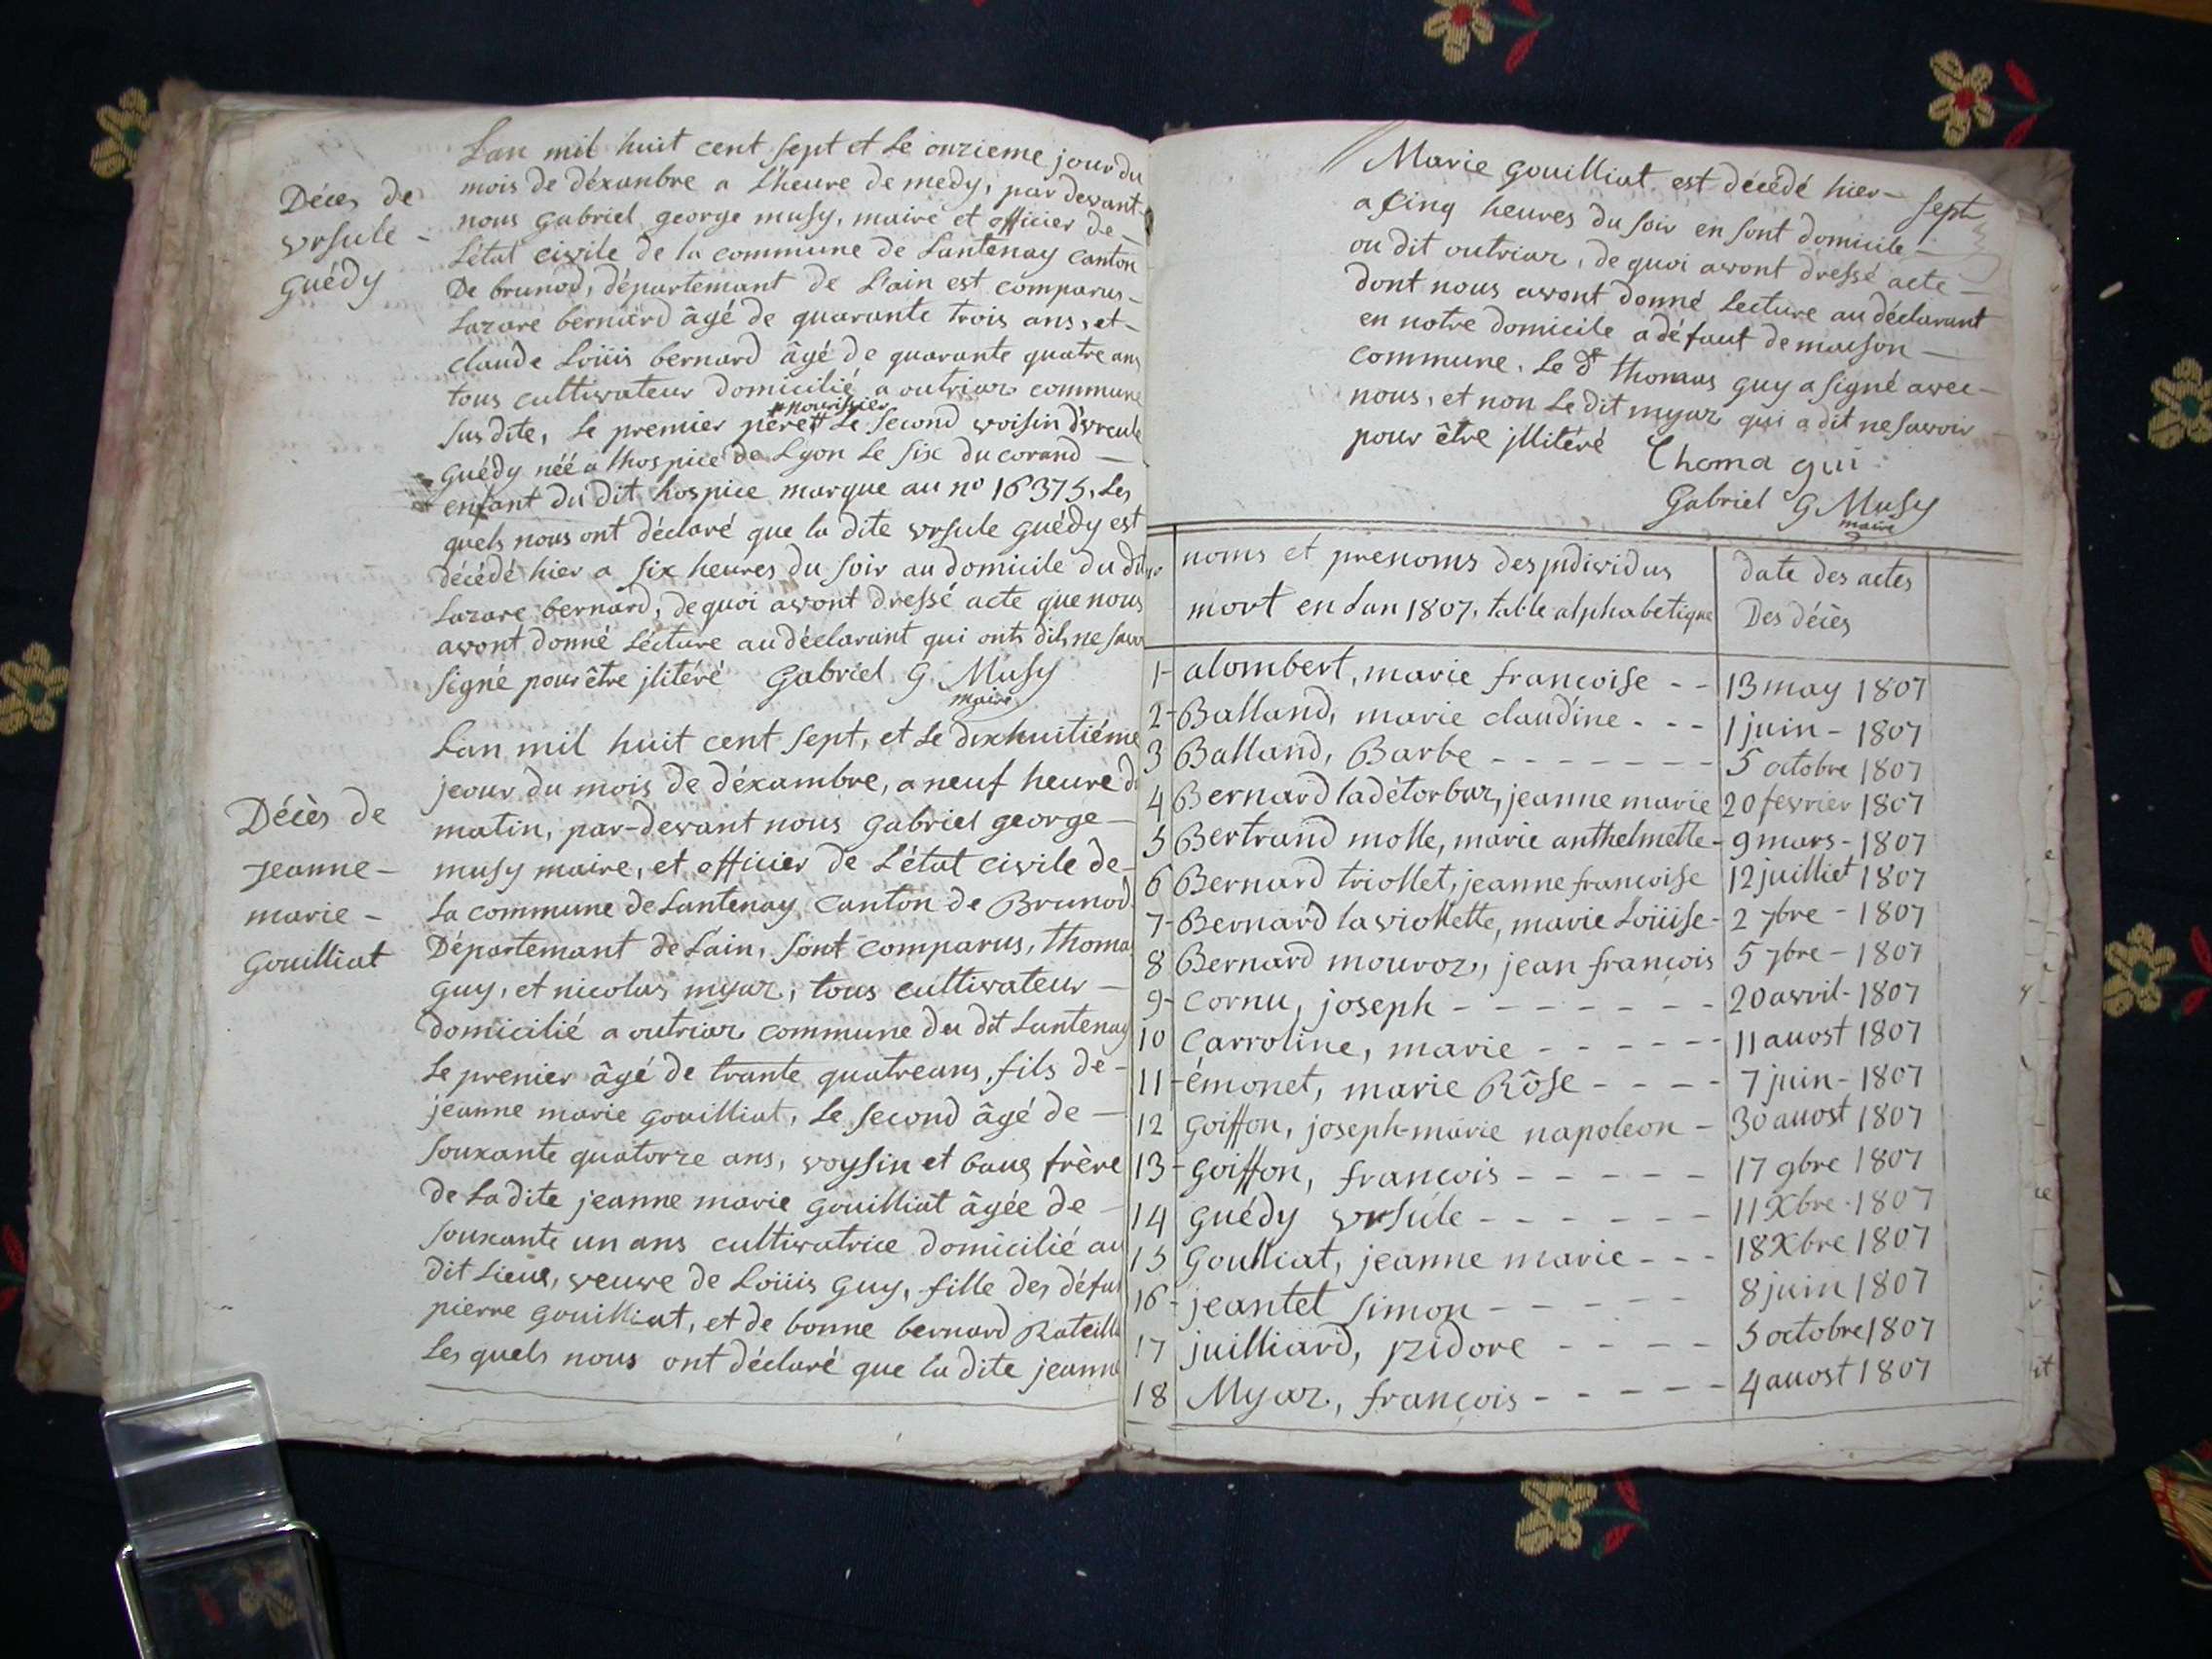 Lan mil huit cent sept et Le onzieme jour du
Décès de
vrsule -
guédy
mois de déxanbre a L'heure de medy, par devant
nous gabriel george musy, maire et officier de -
L'état civile de la commune de Lantenay canton
De brunod, départemant de L'ain est comparus -
Lazare bernard âgé de quarante trois ans, et -
claude Loüis bernard âgé de quarante quatre ans
tous cultivateur domicilié a outriaz commune
nourissier
sus dite, le premier pere # Le second voisin d'vrcule
guédy néé a lhospice de Lyon Le six du corand -
enfant du dit hospice marque au nº 16375, Les
quels nous ont déclaré que la dite vrsule guédy est
décédé hier a six heures du soir au domicile du dit
Lazare bernard, de quoi avont dressé acte que nous
avont donné Lécture au déclarant qui onts dits ne sav
signé pour être jlitéré Gabriel G Musy
maire
Lan mil huit cent sept, et Le dixhuitiéme
Décès de
jeanne -
marie -
gouilliat
jeour du mois de déxambre, a neuf heure d
matin, par-devant nous gabriel george -
musy maire, et officier de L'état civile de -
La commune de Lantenay canton de Brunod
Départemant de L'ain, sont comparus, thoma
guy, et nicolas myaz, tous cultivateur -
domicilié a outriaz commune du dit Lantenay
Le prenier âgé de trante quatre ans, fils de -
jeanne marie gouilliat, Le second âgé de -
souxante quatorze ans, voysin et baux frère
de La dite jeanne marie gouilliat âgée de -
souxante un ans cultivatrice domicilié au
dit Lieux, veuve de Loüis guy, fille des défu
pierre gouilliat, et de bonne bernard Rateill
Les quels nous ont déclaré que la dite jeanne
Marie gouilliat est décédé hier - sept
a cinq heures du soir en sont domicile -
ou dit outriaz, de quoi avont dressé acte -
dont nous avont donné Lecture au déclarant
en notre domicile a défaut de maison -
commune. Le dt thomas guy a signé avec -
nous, et non Le dit myaz qui a dit ne savoir
pour être jllitéré Thoma gui
Gabriel G Musy
maire
noms et prenoms des jndividus date des actes
mort en Lan 1807, table alphabetique Des décès
1- alombert, marie francoise - - 13 may 1807
2- Balland, marie claudine - - - 1 juin - 1807
3 Balland, Barbe - - - - - - - 5 octobre 1807
4 Bernard ladétorbaz, jeanne marie 20 fevrier 1807
5 Bertrand molle, marie anthelmette - 9 mars - 1807
6 Bernard triollet, jeanne francoise 12 juilliet 1807
7- Bernard laviollette, marie Loüise - 2 7bre - 1807
8 Bernard mouroz, jean francois 5 7bre - 1807
9- cornu, joseph - - - - - - - 20 avril - 1807
10 carroline, marie - - - - - - 11 auost 1807
11- émonet, marie Rôse - - - - 7 juin - 1807
12 goiffon, joseph-marie napoleon - 30 auost 1807
13- goiffon, francois - - - - - 17 9bre 1807
14 guédy vrsule - - - - - - 11 Xbre - 1807
15 goulliat, jeanne marie - - - 18 Xbre 1807
16- jeantet simon - - - - - 8 juin 1807
17 juilliard, jzidore - - - - 5 octobre 1807
18 Myaz, françois - - - - - 4 auost 1807